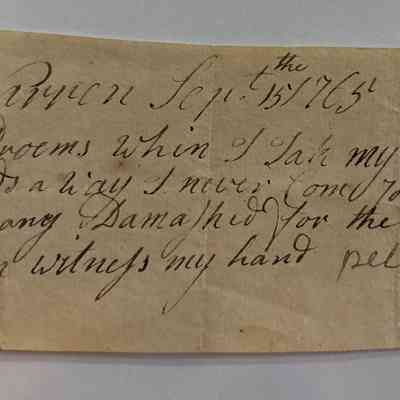 Warren Sept. 15the 1765
Prooms when I Tak my
ds a way I never Come To
any Damashid for the
witness my hand pel